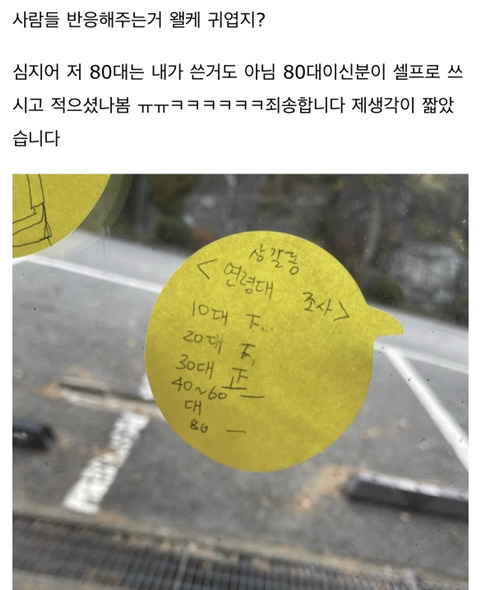 사람들 반응해주는거 왤케 귀엽지?
심지어 저 80대는 내가 쓴거도 아님 80대이신분이 셀프로 쓰
시고 적으셨나봄 ㅠㅠㅋㅋㅋㅋㅋㅋ죄송합니다 제생각이 짧았
습니다
상갈동
<연령대 조사>
10대 下
20대
30대 正
40~60 一
대
80 一